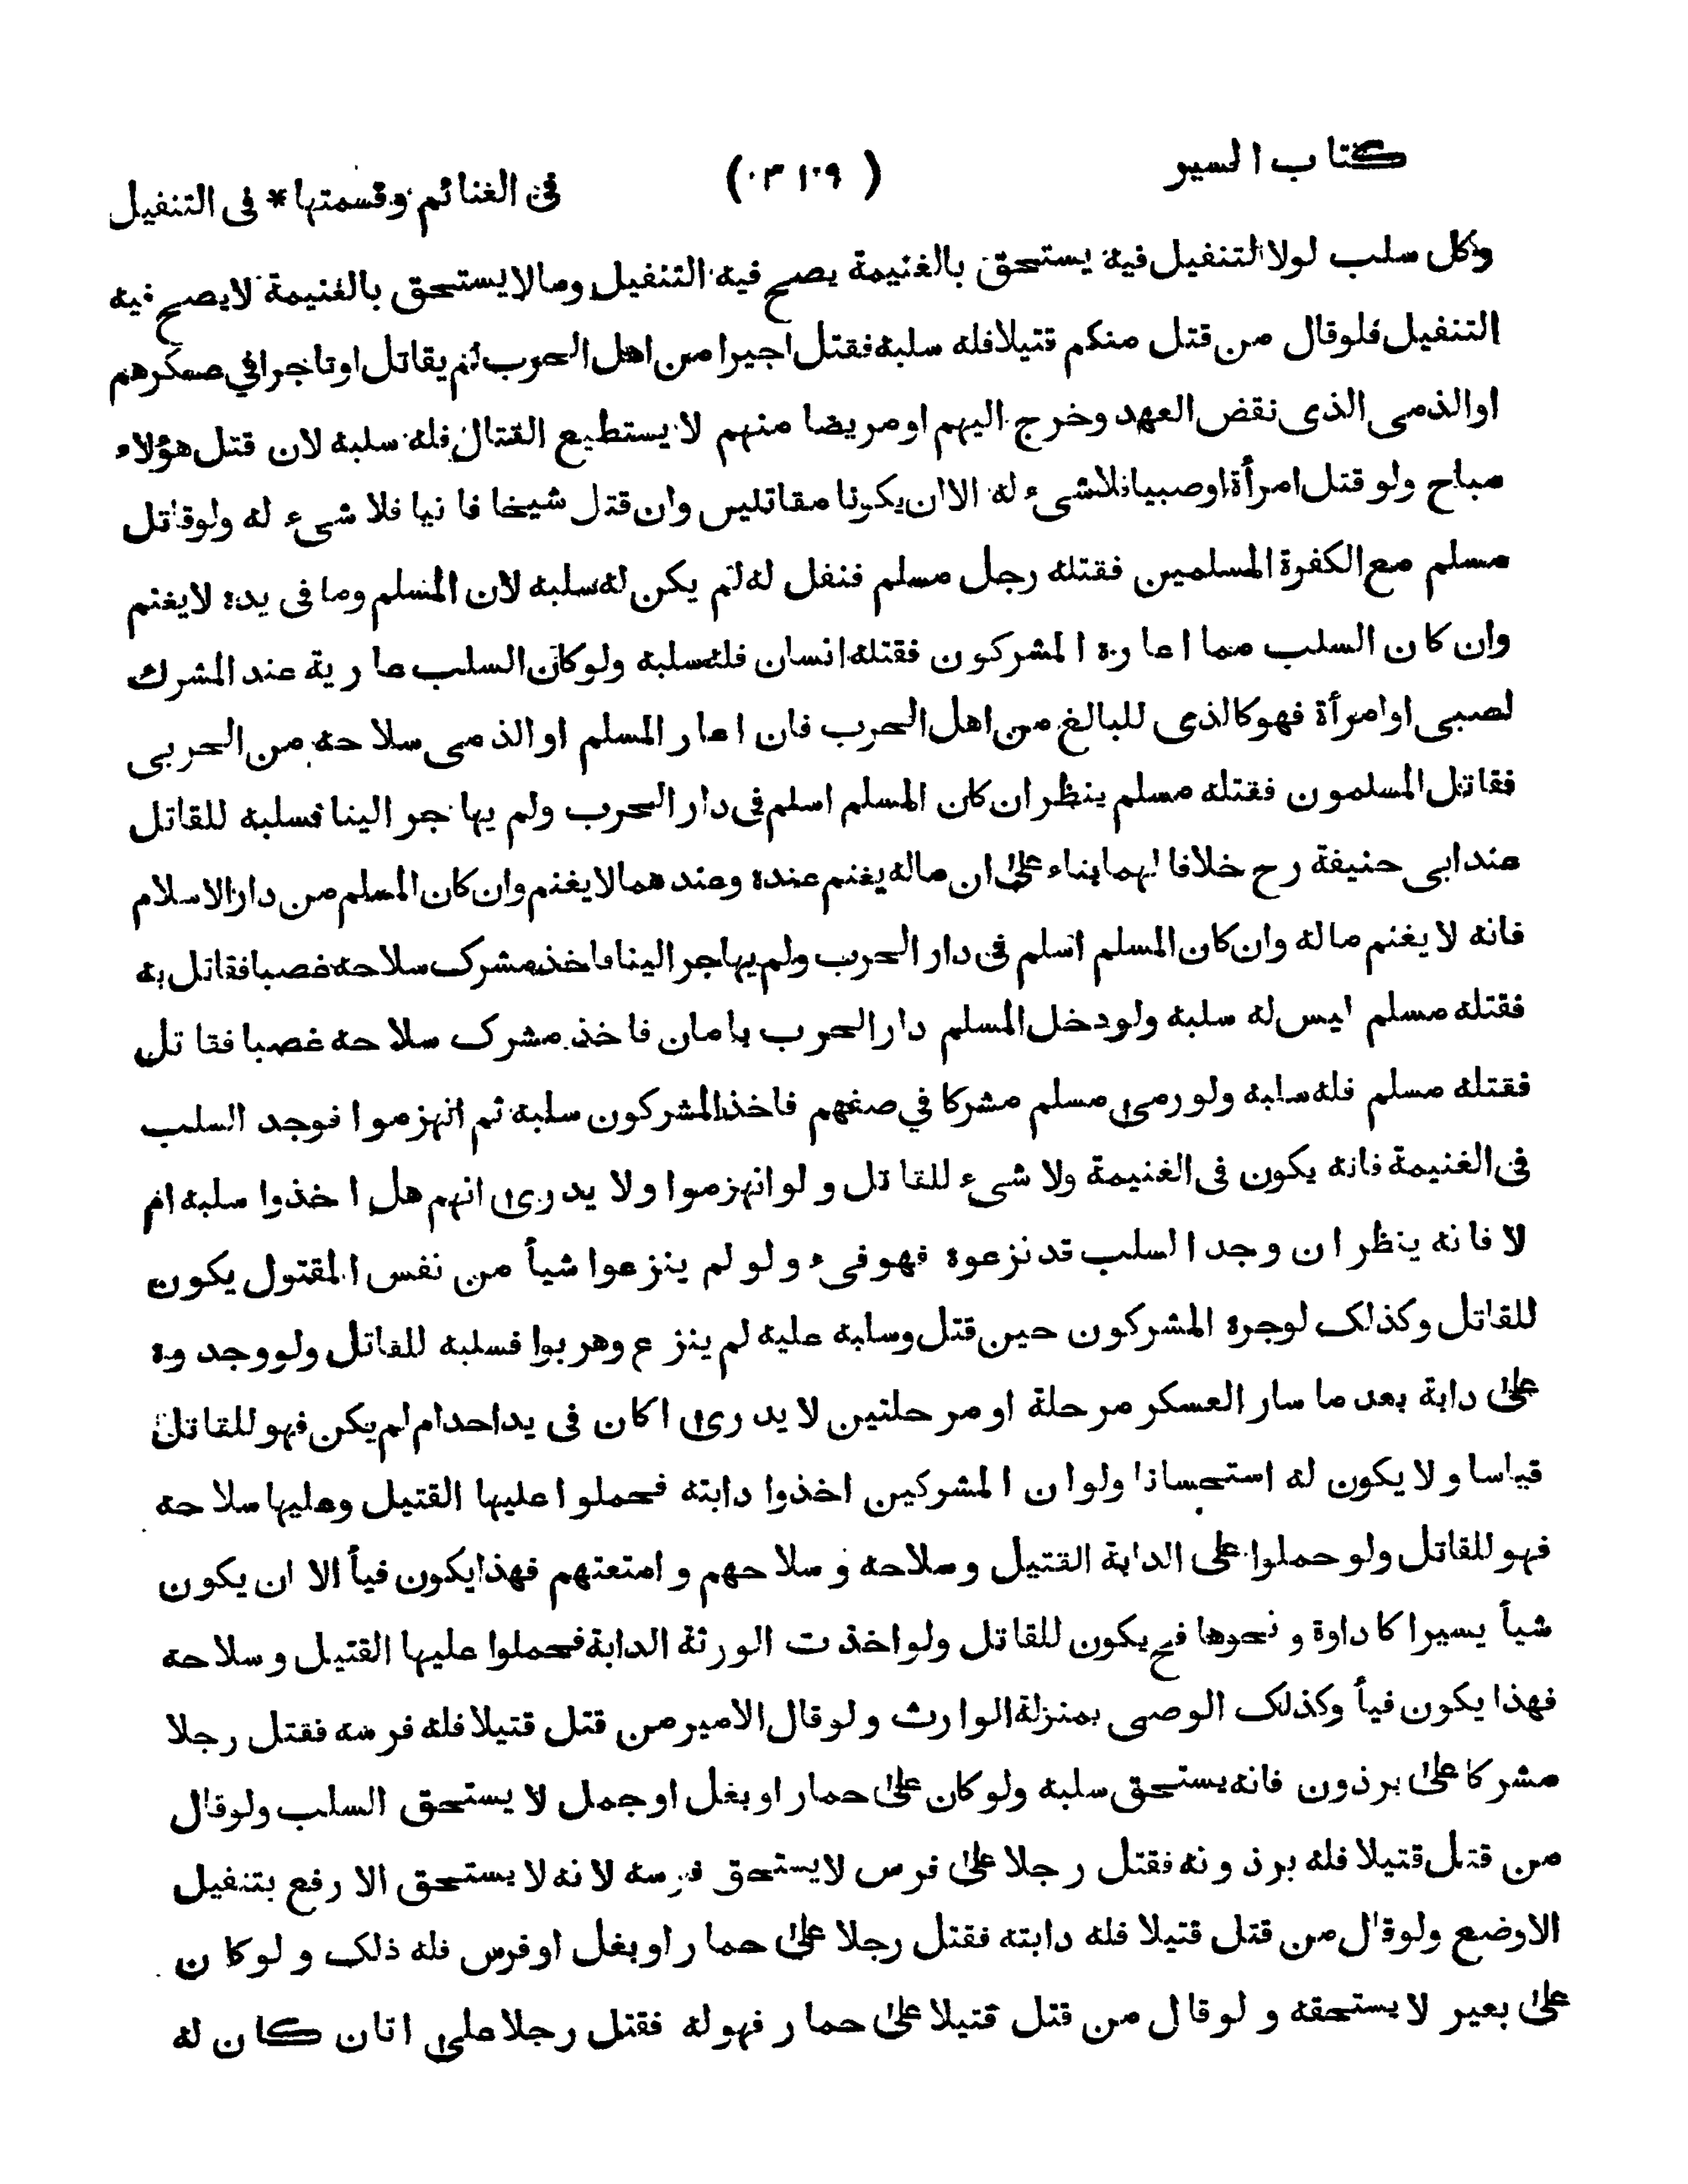 كتاب السير
( ٣١٠٩ )
في الغنائم وقسمتها * في التنفيل
وكل سلب لولا التنفيل فيه يستحق بالغنيمة يصح فيه التنفيل وما لا يستحق بالغنيمة لا يصح فيه
التنفيل فلو قال من قتل منكم قتيلا فله سلبه فقتل اجيرا من اهل الحرب لم يقاتل او تاجرا في عسكرهم
او الذمي الذي نقض العهد وخرج اليهم او مريضا منهم لا يستطيع القتال فله سلبه لان قتل هؤلاء
مباح ولو قتل امرأة او صبيا فلا شيء له الا ان يكونا مقاتلين وان قتل شيخا فانيا فلا شيء له ولو قاتل
مسلم مع الكفرة المسلمين فقتله رجل مسلم فنفل له لم يكن له سلبه لان المسلم وما في يده لا يغنم
وان كان السلب مما اعاره المشركون فقتله انسان فله سلبه ولو كان السلب عارية عند المشرك
لصبي او امرأة فهو كالذي للبالغ من اهل الحرب فان اعار المسلم او الذمي سلاحه من الحربي
فقاتل المسلمون فقتله مسلم ينظر ان كان المسلم اسلم في دار الحرب ولم يهاجر الينا فسلبه للقاتل
عند ابي حنيفة رح خلافا لهما بناء على ان ماله يغنم عنده وعندهما لا يغنم وان كان المسلم من دار الاسلام
فانه لا يغنم ماله وان كان المسلم اسلم في دار الحرب ولم يهاجر الينا فاخذ مشرك سلاحه غصبا فقاتل به
فقتله مسلم ليس له سلبه ولو دخل المسلم دار الحرب بامان فاخذ مشرك سلاحه غصبا فقاتل
فقتله مسلم فله سلبه ولو رمى مسلم مشركا في صفهم فاخذ المشركون سلبه ثم انهزموا فوجد السلب
في الغنيمة فانه يكون في الغنيمة ولا شيء للقاتل ولو انهزموا ولا يدرى انهم هل اخذوا سلبه ام
لا فانه ينظر ان وجد السلب قد نزعوه فهو فيء ولو لم ينزعوا شيأ من نفس المقتول يكون
للقاتل وكذلك لو جره المشركون حين قتل وسلبه عليه لم ينزع وهربوا فسلبه للقاتل ولو وجدوه
على دابة بعد ما سار العسكر مرحلة او مرحلتين لا يدرى اكان في يد احد ام لم يكن فهو للقاتل
قياسا ولا يكون له استحسانا ولو ان المشركين اخذوا دابته فحملوا عليها القتيل وعليها سلاحه
فهو للقاتل ولو حملوا على الدابة القتيل وسلاحه وسلاحهم وامتعتهم فهذا يكون فيأ الا ان يكون
شيأ يسيرا كاداوة ونحوها فح يكون للقاتل ولو اخذت الورثة الدابة فحملوا عليها القتيل وسلاحه
فهذا يكون فيأ وكذلك الوصي بمنزلة الوارث ولو قال الامير من قتل قتيلا فله فرسه فقتل رجلا
مشركا على برذون فانه يستحق سلبه ولو كان على حمار او بغل او جمل لا يستحق السلب ولو قال
من قتل قتيلا فله برذونه فقتل رجلا على فرس لا يستحق فرسه لانه لا يستحق الارفع بتنفيل
الاوضع ولو قال من قتل قتيلا فله دابته فقتل رجلا على حمار او بغل او فرس فله ذلك ولو كان
على بعير لا يستحقه ولو قال من قتل قتيلا على حمار فهو له فقتل رجلا على اتان كان له